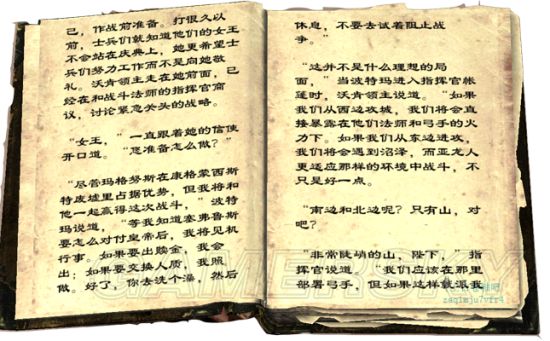 己，作战前准备。打很久以
前，士兵们就知道他们的女王
不会站在庆典上，她更希望士
兵们努力工作而不是向她敬
礼。沃肯领主走在她前面，已
经在和战斗法师的指挥官商
议，讨论紧急关头的战略。
“女王，”一直跟着她的信使
开口道。“您准备怎么做？”
“尽管玛格努斯在康格蒙西斯
特废墟里占据优势，但我将和
他一起赢得这次战斗，”波特
玛说道，“等我知道塞弗鲁斯
要怎么对付皇帝后，我将见机
行事。如果要出赎金，我会
出；如果要交换人质，我照
做。好了，你去洗个澡，然后
休息，不要去试着阻止战
争。
“这并不是什么理想的局
面，”当波特玛进入指挥官帐
蓬时，沃肯领主说道。“如果
我们从西边攻城，我们将会直
接暴露在他们法师和弓手的火
力下。如果我们从东边进攻，
我们将会遇到沼泽，而亚龙人
更适应那样的环境中战斗，不
只是好一点。
“南边和北边呢？只有山，对
吧？
“非常陡峭的山，陛下，”指
挥官说道，“我们应该在那里
部署弓手，但如果这样就派我
GAMERSKY
zaqimju7vfr4